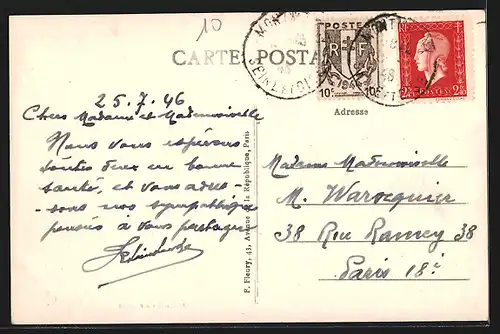 10
CARTE POSTALE
POSTES
RF
10c
POSTES
25.7.46
Chers Madame et Mademoiselle
Nous vous espérons
toutes deux en bonne
santé, et vous adres-
-sons nos sympathiques
pensées à vous partagées
P. Fleury, 43, Avenue de la République, Paris
Adresse
Madame Mademoiselle
M. Warocquier
38 Rue Ramey 38
Paris 18e